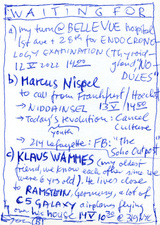 WAITING FOR
a) my turn @ BELLEVUE hospital
1st ave + 25th for ENDOCRINO
LOGY EXAMINATION (Thyroid
12 V 2021 14:00 gland NO
DULES"
b) Marcus Nispel
to call from Frankfurt/Höchst
→ NIDDAINSEL 13 V 14:00
→ Today's revolution: Cancel
youth Culture
→ 214 Lafayette: FB: "The
Soho Outpost
c) KLAUS WAMMES (my oldest
friend, we know each other since we
were 6 yrs old). He lives close
to RAMSTEIN, Germany, a lot of
C5 GALAXY airplanes flying
over his house 14 V 10:30 @